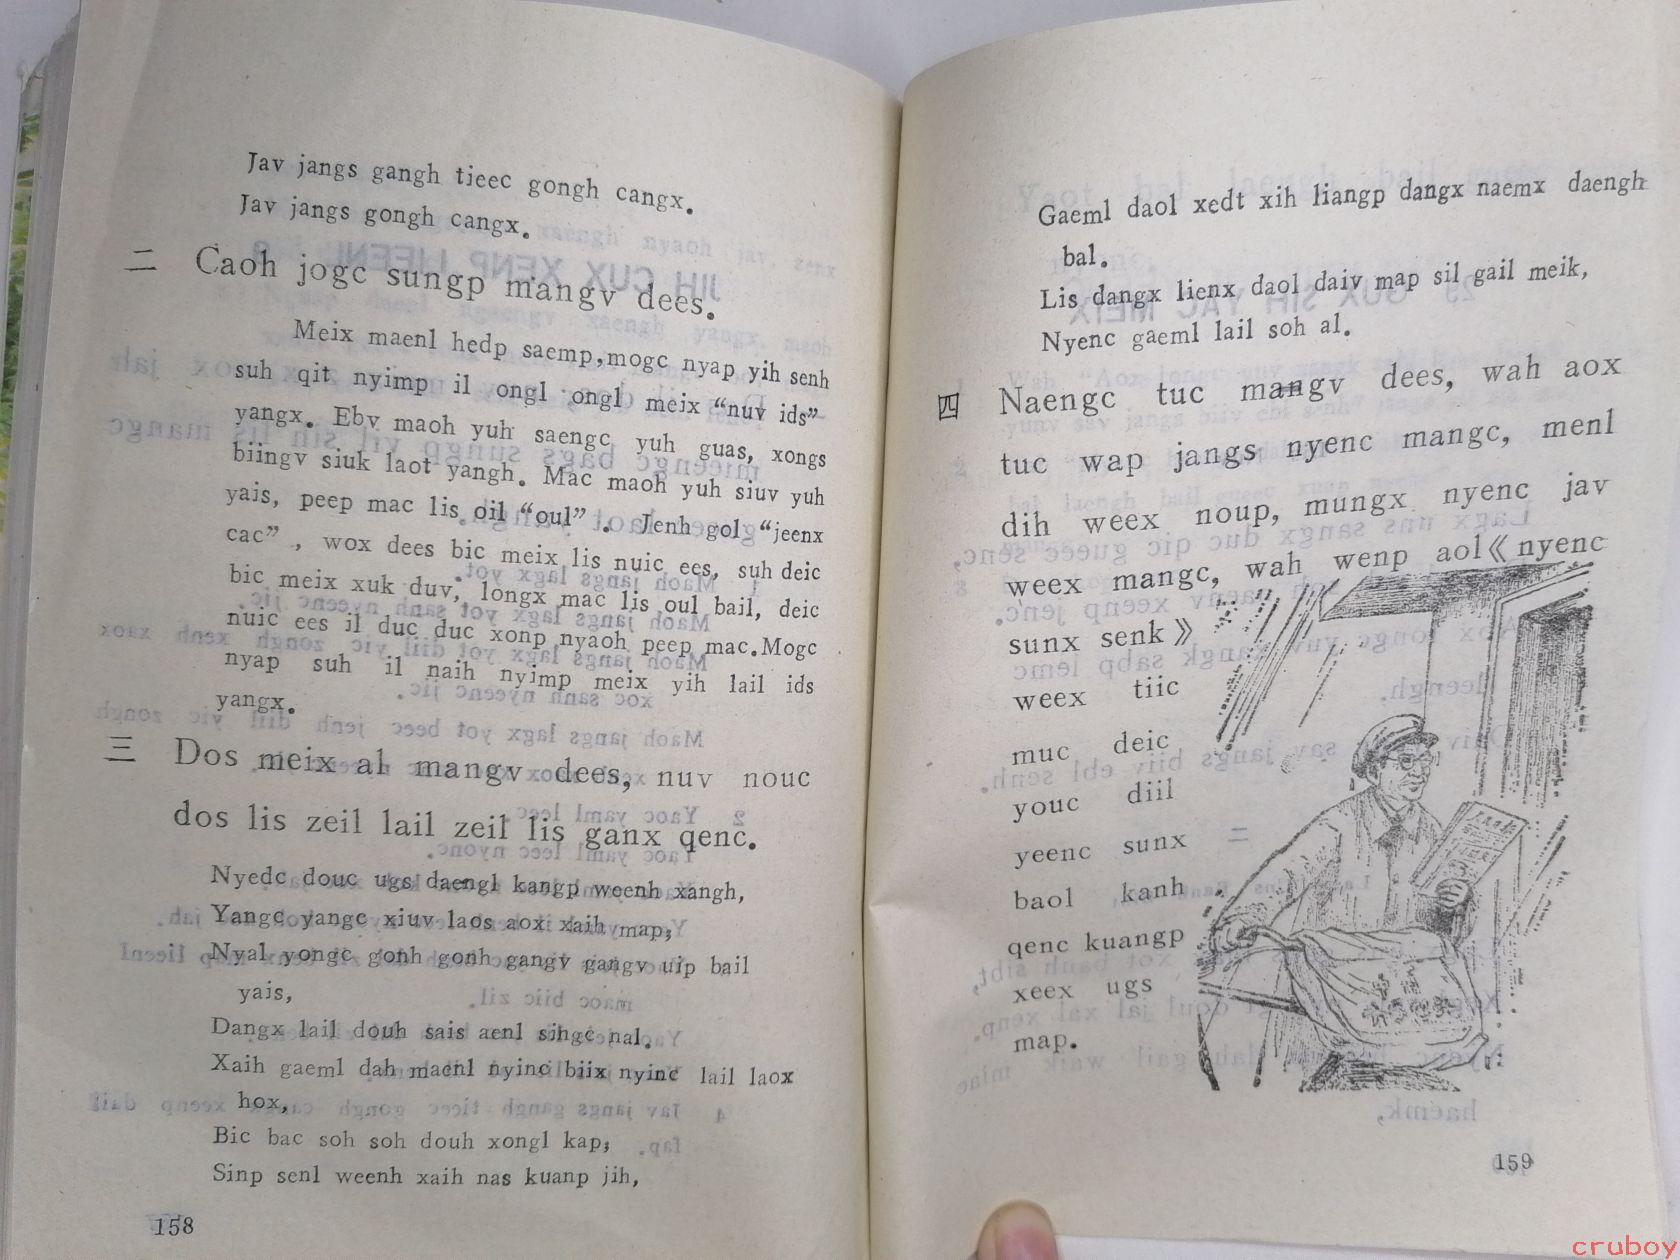 Jav jangs gangh tieec gongh cangx.
Jav jangs gongh cangx.
二 Caoh jogc sungp mangv dees.
Meix maenl hedp saemp, mogc nyap yih senh
suh qit nyimp il ongl ongl meix “nuv ids”
yangx. Ebv maoh yuh saengc yuh guas, xongs
biingv siuk laot yangh. Mac maoh yuh siuv yuh
yais, peep mac lis oil “oul”. Jenh gol “jeenx
cac”, wox dees bic meix lis nuic ees, suh deic
bic meix xuk duv, longx mac lis oul bail, deic
nuic ees il duc duc xonp nyaoh peep mac. Mogc
nyap suh il naih nyimp meix yih lail ids
yangx.
三 Dos meix al mangv dees, nuv nouc
dos lis zeil lail zeil lis ganx qenc.
Nyedc douc ugs daengl kangp weenh xangh,
Yangc yangc xiuv laos aox xaih map;
Nyal yongc gonh gonh gangv gangv uip bail
yais,
Dangx lail douh sais aenl sihgc nal.
Xaih gaeml dah maenl nyinc biix nyinc lail laox
hox,
Bic bac soh soh douh xongl kap;
Sinp senl weenh xaih nas kuanp jih,
158
Gaeml daol xedt xih liangp dangx naemx daengh
bal.
Lis dangx lienx daol daiv map sil gail meik,
Nyenc gaeml lail soh al.
四 Naengc tuc mangv dees, wah aox
tuc wap jangs nyenc mangc, menl
dih weex noup, mungx nyenc jav
weex mangc, wah wenp aol《nyenc
sunx senk》
weex tiic
muc deic
youc diil
yeenc sunx
baol kanh
qenc kuangp
xeex ugs
map.
159
cruboy